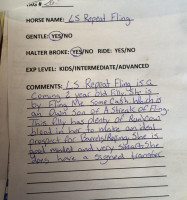 HORSE NAME: LS Repeat Fling
GENTLE: YES/NO
HALTER BROKE: YES/NO RIDE: YES/NO
EXP LEVEL: KIDS/INTERMEDIATE/ADVANCED
COMMENTS: LS Repeat Fling is a
Coming 2 year old Filly. She is
by Fling Me Some Cash which is
an own Son of A Streak of Fling.
This filly has plenty of Run/Cow
blood in her to make an
prospect for Barrels/Roping. She is
well minded and very smart. She
does have a signed transfer